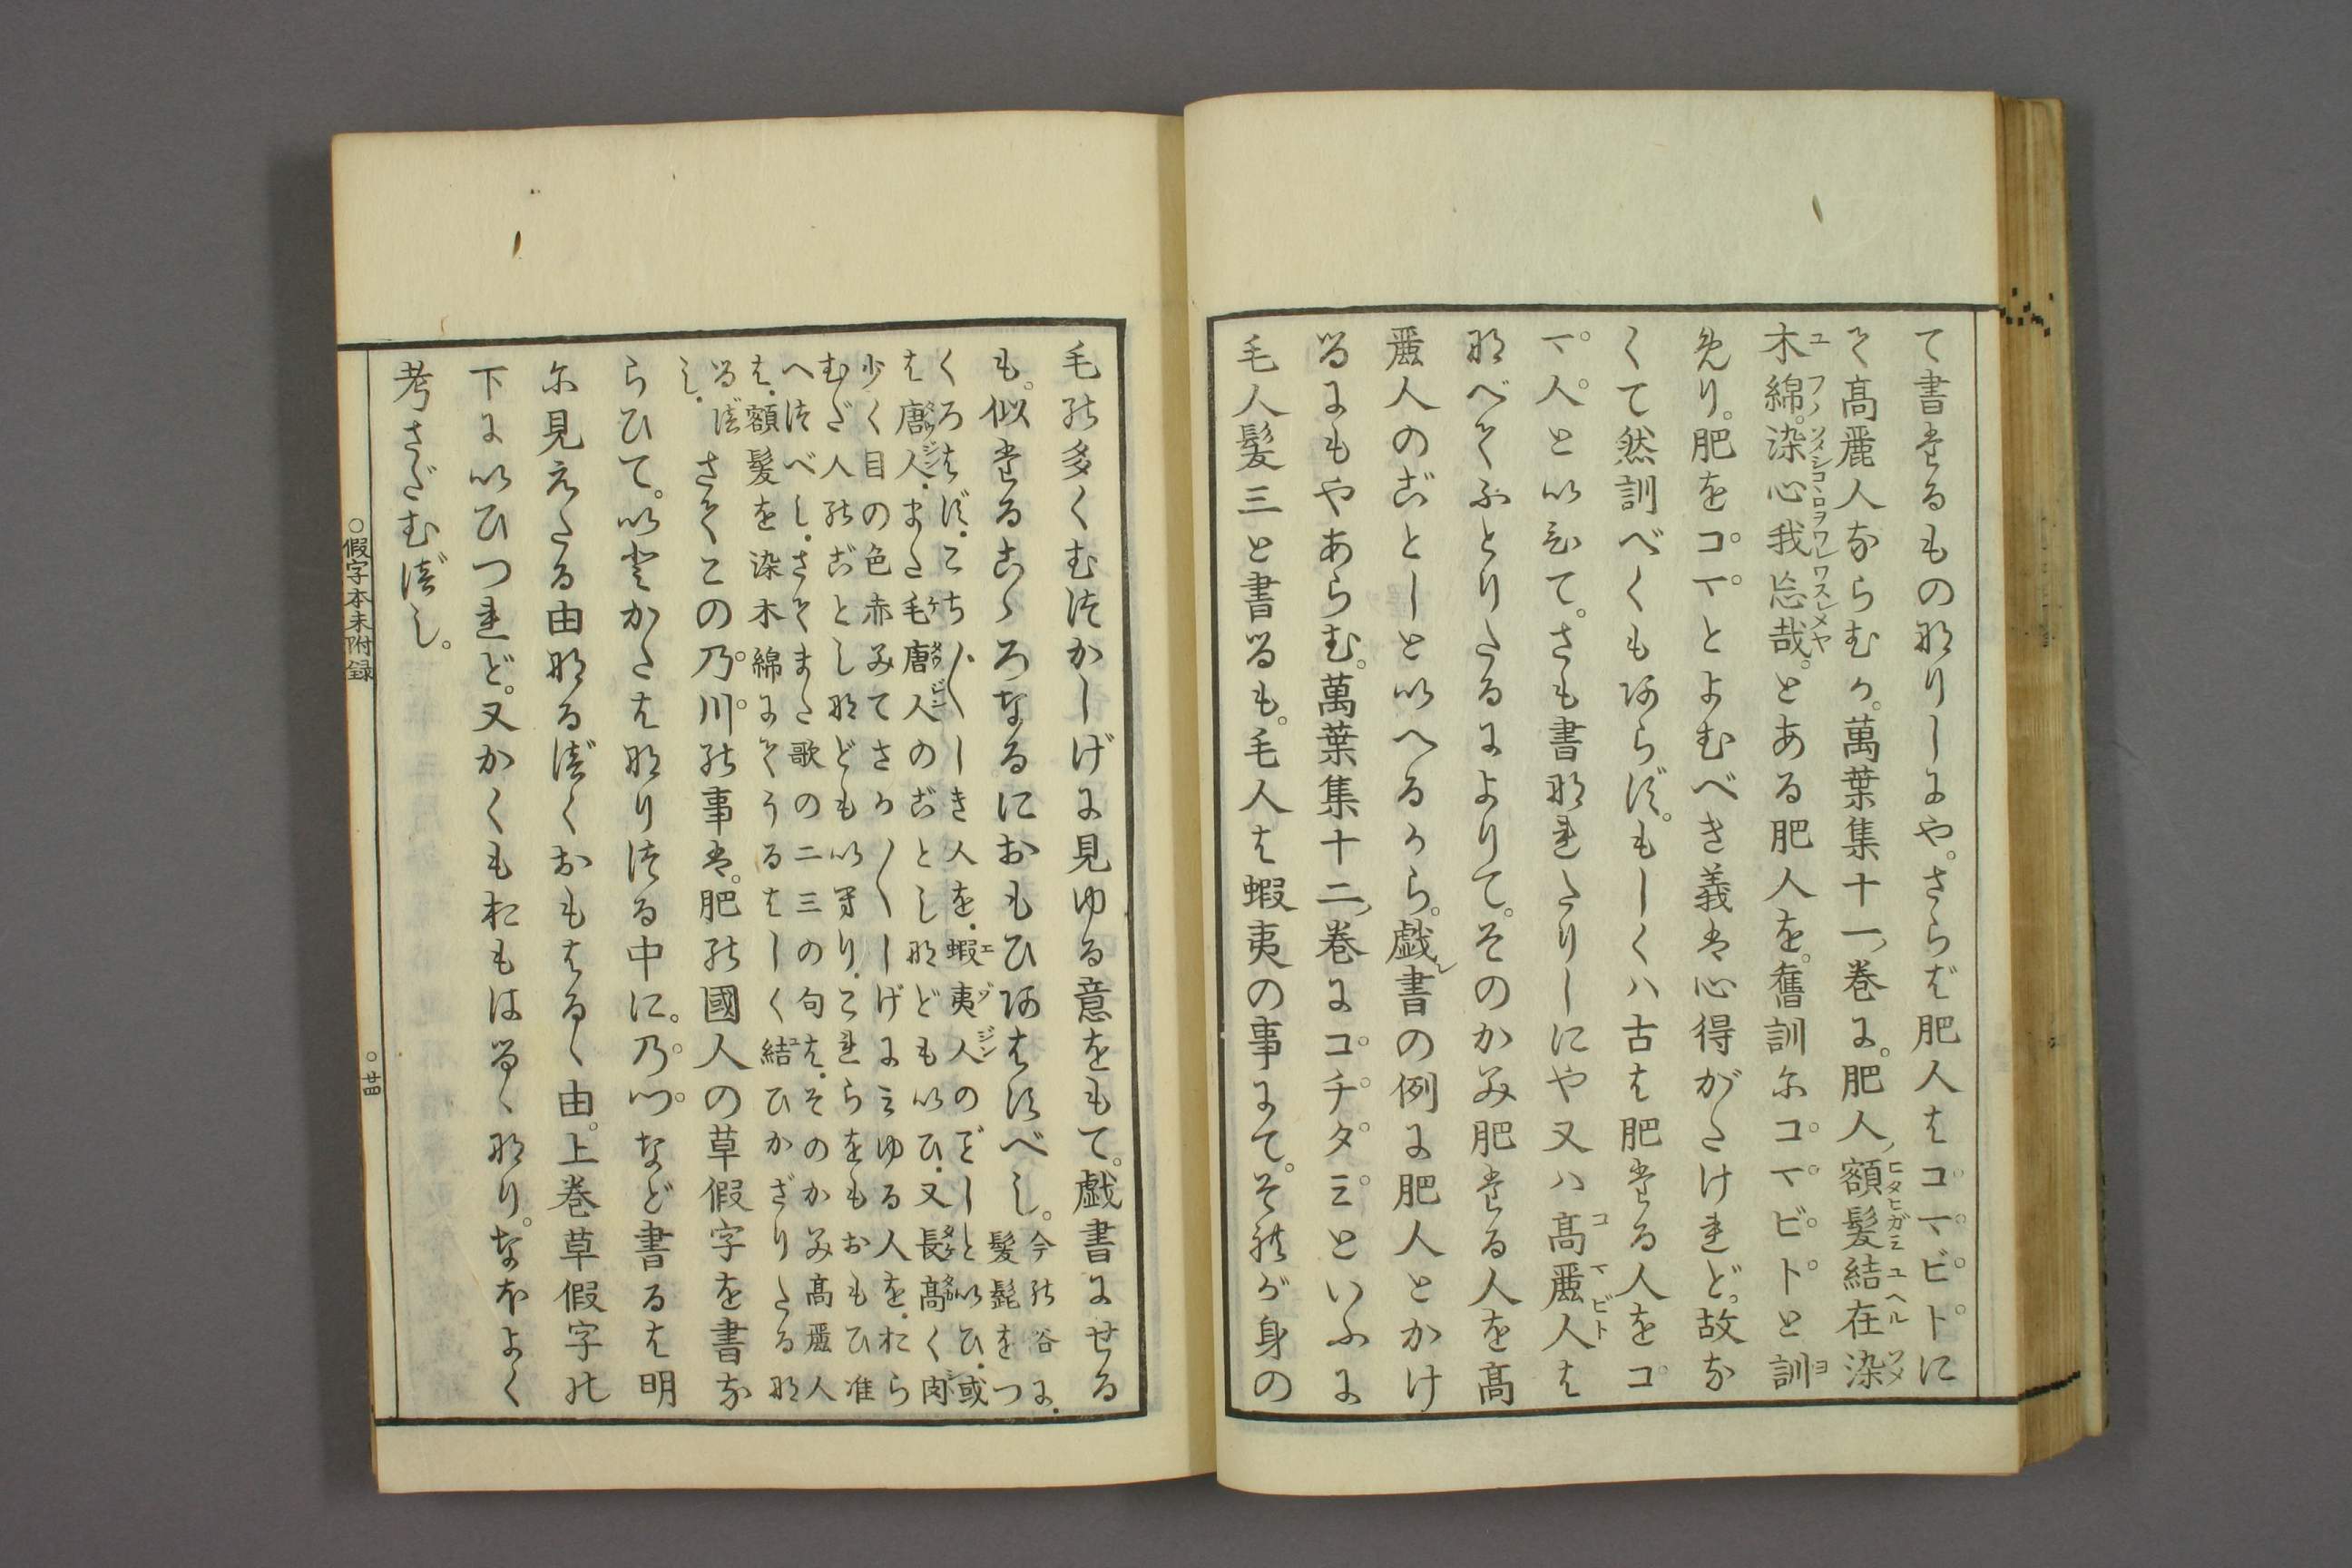 て書るもの那りしにや。さらバ肥人はコマビトに
そ髙麗人ならむか。萬葉集十一ノ巻に。肥人ノ額髪結在染
木綿。染心我忘哉。とある肥人を。舊訓にコマビトと訓
めり。肥をコマとよむべき義は心得がたけれど。故な
くて然訓べくもあらず。もしくハ古は肥たる人をコ
マ人といひて。さも書なれたりしにや又ハ髙麗人は
なべてふとりたるによりて。そのかみ肥たる人を髙
麗人のごとしといへるから。戯レ書の例に肥人とかけ
るにもやあらむ。萬葉集十二ノ巻にコチタミといふに
毛人髪三と書るも。毛人は蝦夷の事にて。そが身の
毛の多くむつかしげに見ゆる意をもて。戯書にせる
も。似たるこゝろなるにおもひあはすべし。今の谷に。
髪髭をつ
くろはず。こち〴〵しき人を。蝦夷人のごとしといひ。或
は唐人。また毛唐人のごとし那どもいひ。又長髙く肉
少く目の色赤みてさか〳〵しげにミゆる人を。おら
むだ人のごとし那どもいへり。これらをもおもひ准
へつべし。さてまた歌の二三の句は。そのかみ髙麗人
は。額髪を染木綿にてうるはしく結ひかざりたる那
るべ
し。
さてこの乃川の事は。肥の國人の草假字を書な
らひて。いとかたはなりつる中に。乃ツなど書るは明
に見えたる由なるべくおもはるゝ由。上巻草假字の
下にいひつれど。又かくもおもはるゝなり。なほよく
考さだむべし。
○假字本末附録
○廿四